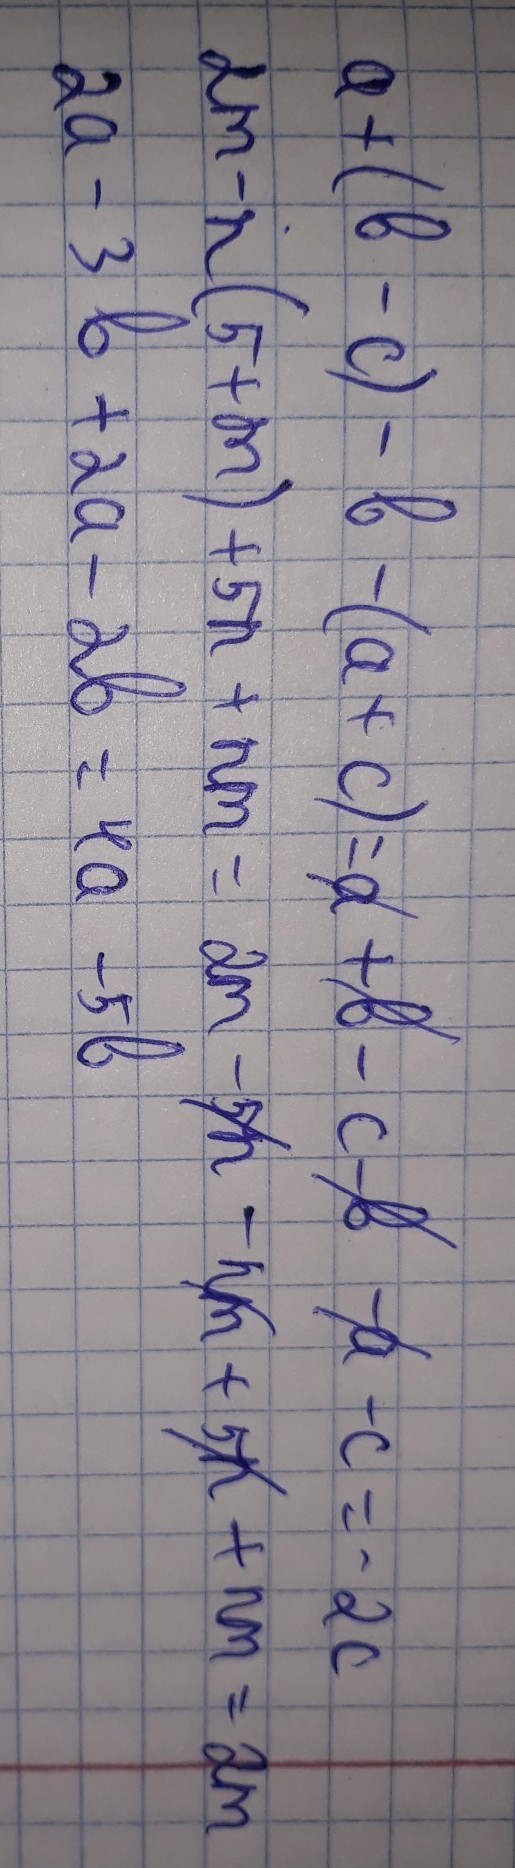 a+(b-c)-b-(a+c)=a+b-c-b-a-c=-2c
2m-n(5+m)+5n+nm=2m-5n-nm+5n+nm=2m
2a-3b+2a-2b=4a-5b